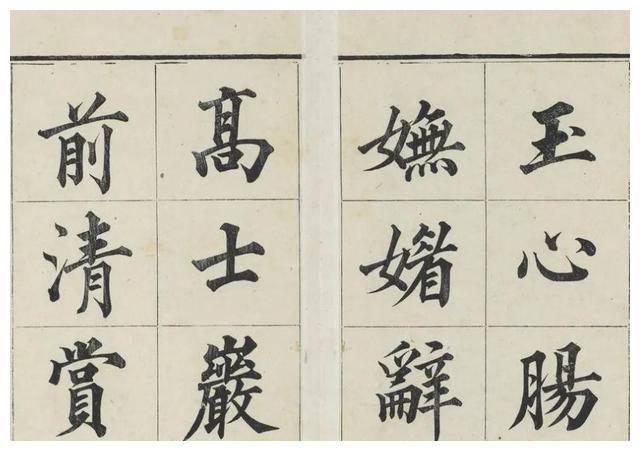 玉心腸
嫵媚辭
高士巖
前清賞